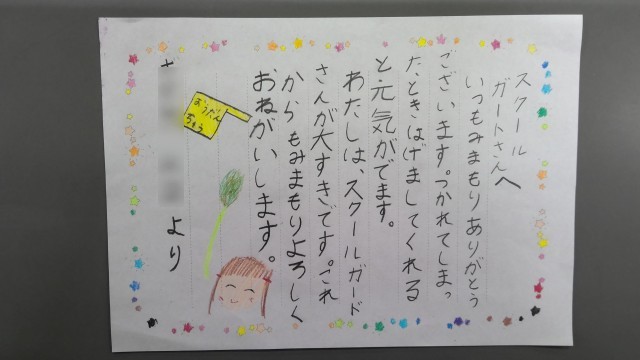 スクール
ガートさんへ
いつもみまもりありがとう
ございます。つかれてしまっ
たときはげましてくれる
と元気がでます。
わたしは、スクールガード
さんが大すきです。これ
からもみまもりよろしく
おねがいします。
おうだん
ちゅう
より